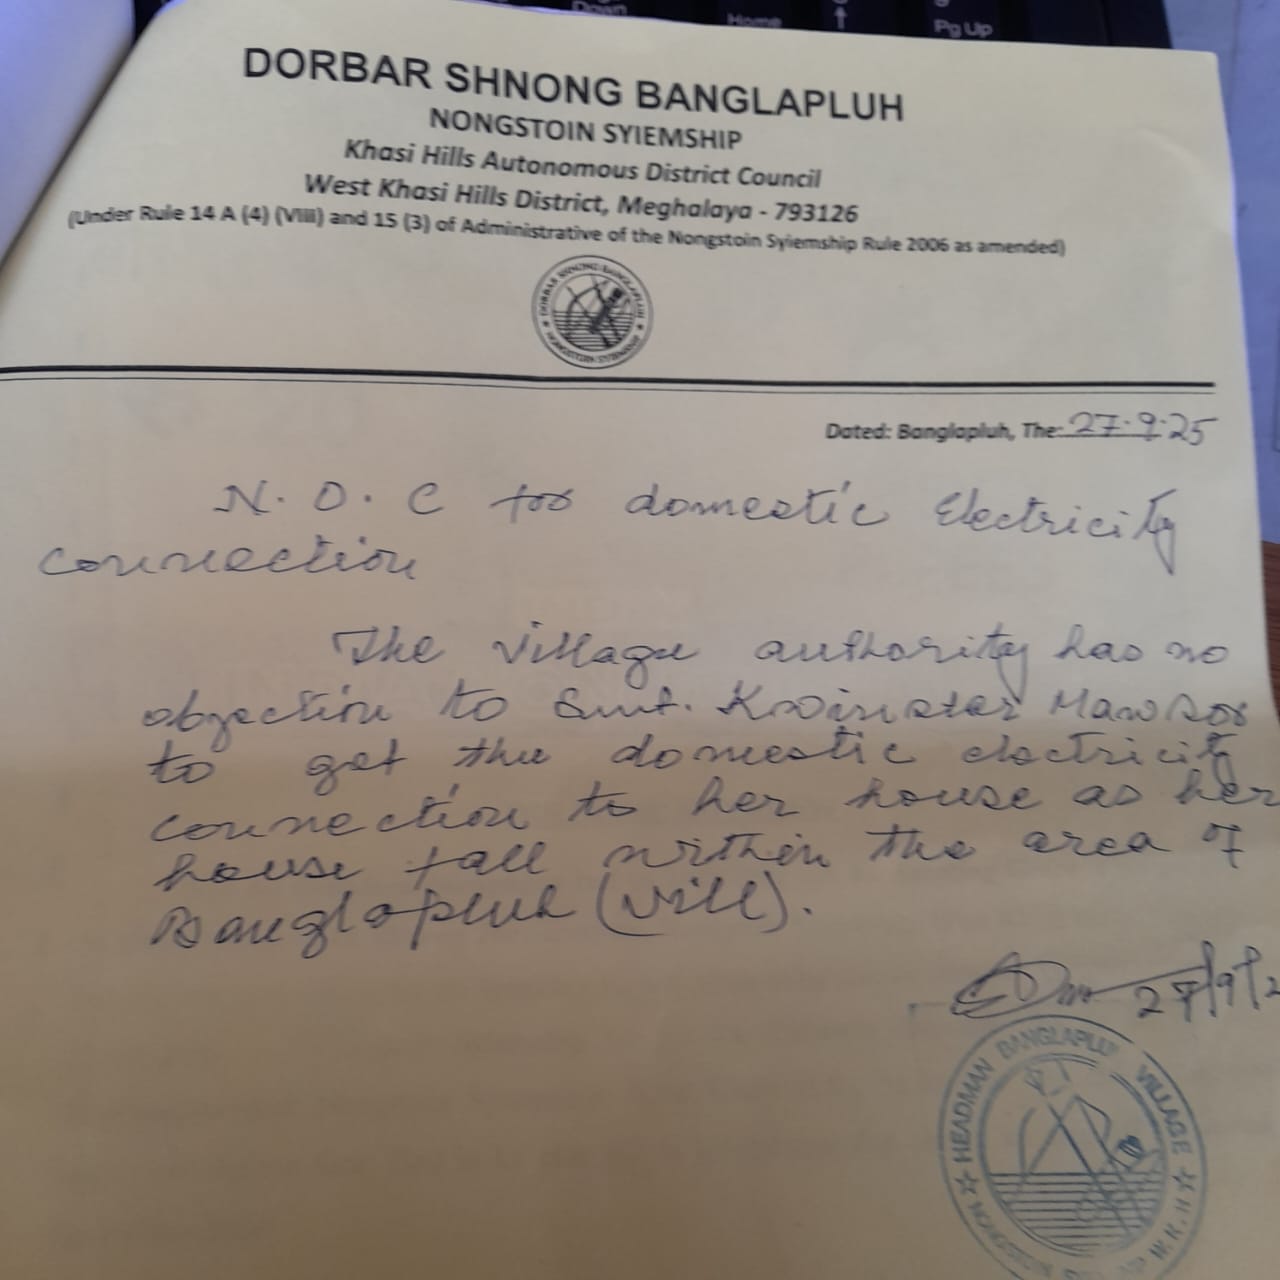 Down
Home ↑ Pg Up
DORBAR SHNONG BANGLAPLUH
NONGSTOIN SYIEMSHIP
Khasi Hills Autonomous District Council
West Khasi Hills District, Meghalaya - 793126
(Under Rule 14 A (4) (VIII) and 15 (3) of Administrative of the Nongstoin Syiemship Rule 2006 as amended)
DORBAR SHNONG BANGLAPLUH
★ NONGSTOIN SYIEMSHIP ★
Dated: Banglapluh, The 27.9.25
N.O.C for domestic Electricity
connection
The village authority has no
objection to Smt. Kwinster Mawsor
to get the domestic electricity
connection to her house as her
house fall within the area of
Banglapluh (Vill).
27/9/2
HEADMAN BANGLAPLUH VILLAGE
☆ NONGSTOIN W.K.H ☆